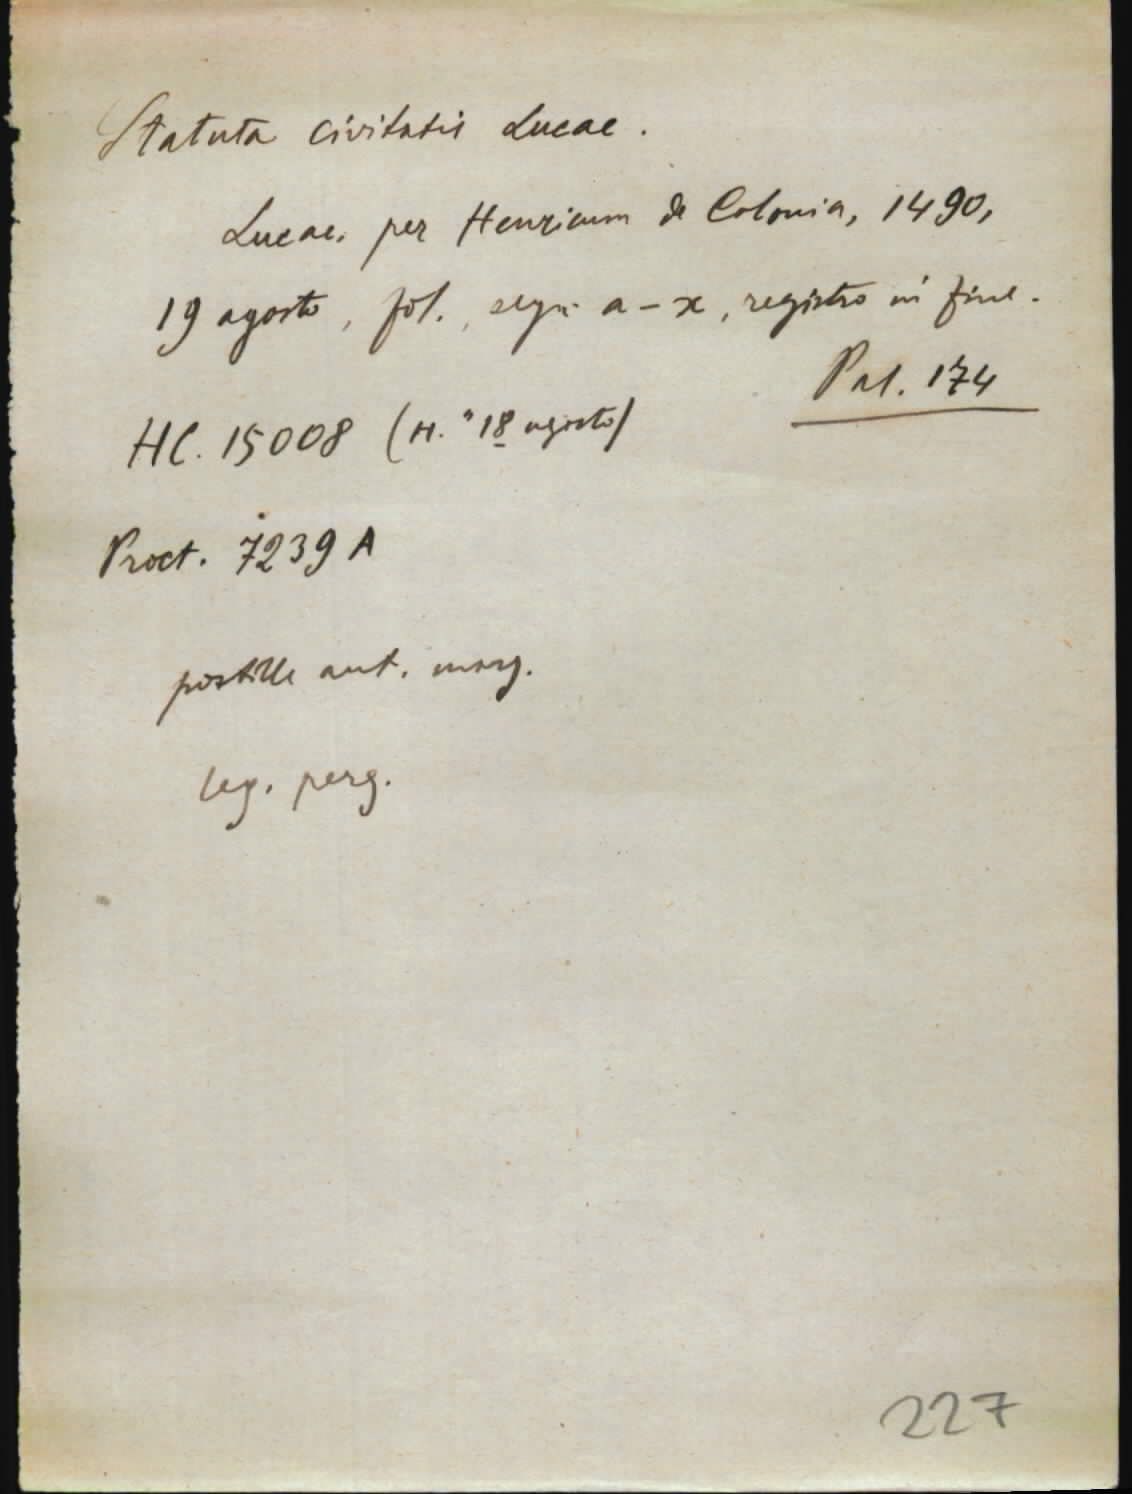 Statuta civitatis Lucae.
Lucae, per Henricum de Colonia, 1490,
19 agosto, fol., segn. a-x, registro in fine.
Pal. 174
HC. 15008 (H. "18 agosto)
Proct. 7239 A
postille ant. marg.
leg. perg.
227